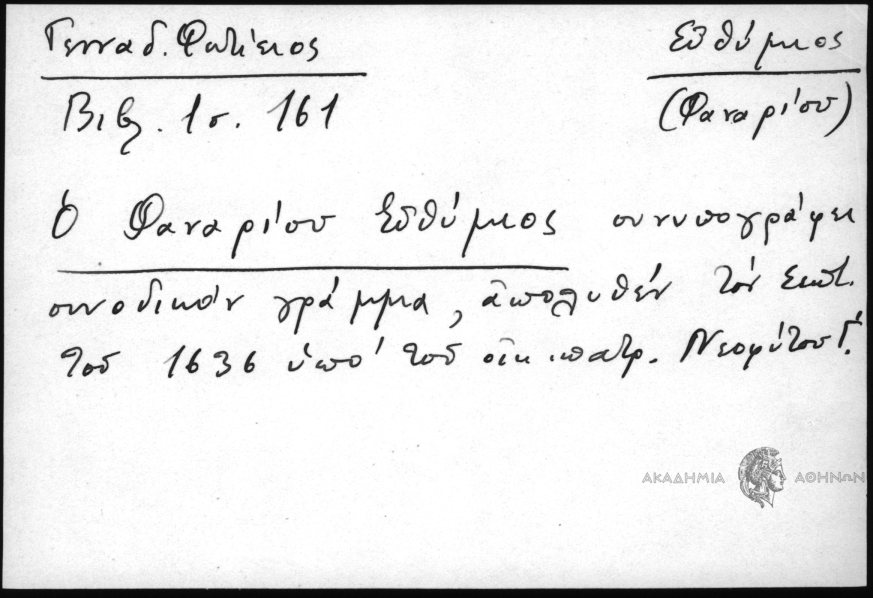 Γενναδ. Φωτίειος
Εὐθύμιος
Βιβλ. 1 σ. 161
(Φαναρίου)
Ὁ Φαναρίου Εὐθύμιος συνυπογράφει
συνοδικὸν γράμμα, ἀπολυθὲν τὸν Σεπτ.
τοῦ 1636 ὑπὸ τοῦ οἰκ. πατρ. Νεοφύτου Γ΄.
ΑΚΑΔΗΜΙΑ ΑΘΗΝΩΝ